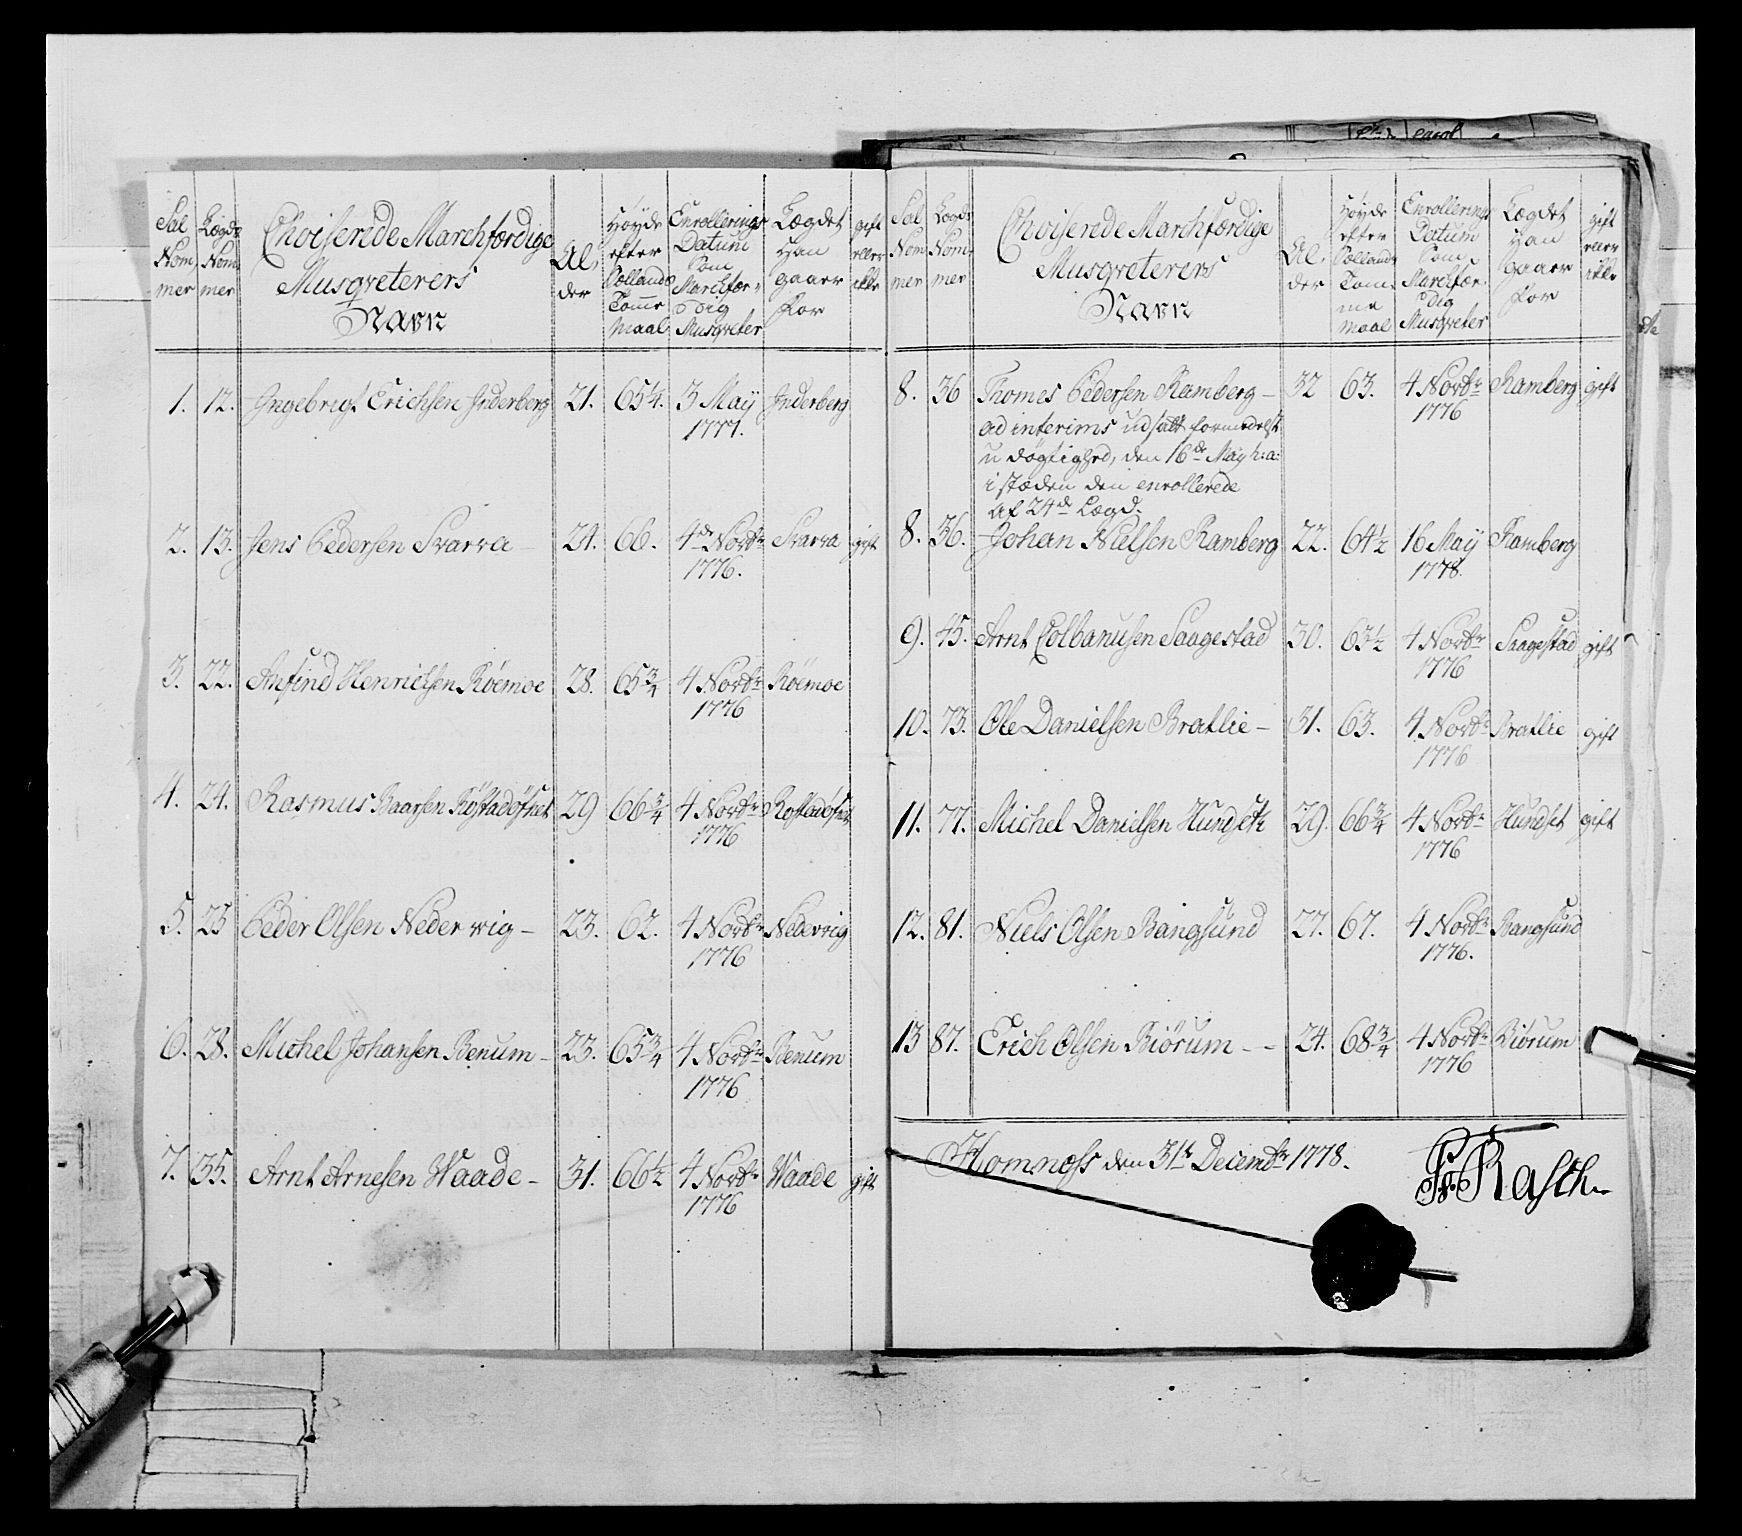 Sal Nommer | Lægds Nommer | Choiserede Marchfærdige Musqveterers Navn | Alder | Høyde efter Sællands Tomme Maal | Enrollerings Datum som Marchfærdig Musqveter | Lægdet Han gaaer for | gift eller ikke
1. 12. Ingebrigt Erichsen Inderberg 21. 65 1/4. 3 May Inderberg
1777.
2. 13. Jens Pedersen Svarva 24. 66. 4de Novbr Svarva gift
1776.
3. 22. Anfind Henrichsen Röemoe 28. 65 3/4 4 Novbr Röemoe
1776
4. 24. Rasmus Baarsen 29 66 3/4 4 Novbr
1776
5. 25 Peder Olsen Neder wig – 23. 62. 4 Novbr Nederwig
1776
6. 28. Michel Johansen Benum – 23. 65 3/4 4 Novbr Benum
1776
7. 35. Arnt Arnesen Waade – 31. 66 1/2 4 Novbr Waade gift
1776
Sal Nommer | Lægds Nommer | Choiserede Marchfærdige Musqveterers Navn | Alder | Høyde efter Sællands Tomme Maal | Enrollerings Datum som Marchfærdig Musqveter | Lægdet Han gaaer for | gift eller ikke
8. 36 Thomes Pedersen Ramberg – 32 63. 4 Novbr Ramberg gift
1776
ad interims udsatt formedelst
udögtighed, den 16de May h: a:
i stæden den enrollerede
af 24de Lægd.
8. 36. Johan Nielsen Ramberg 22. 64 1/2 16 May Ramberg
1778.
9. 45. Arnt Colbanusen Saagestad 30. 63 1/2 4 Novbr Saagestad gift
1776
10. 73. Ole Danielsen Bratlie – 31. 63. 4 Novbr Bratlie gift
1776
11. 77. Michel Danielsen Hundset 29. 66 3/4 4 Novbr Hundset gift
1776
12. 81. Niels Olsen Bangsund 27. 67. 4 Novbr Bangsund
1776.
13 87. Erich Olsen Biörum – – 24. 68 3/4 4 Novbr Biörum
1776
Homness den 31te Decembr 1778.
Fr. Rasch